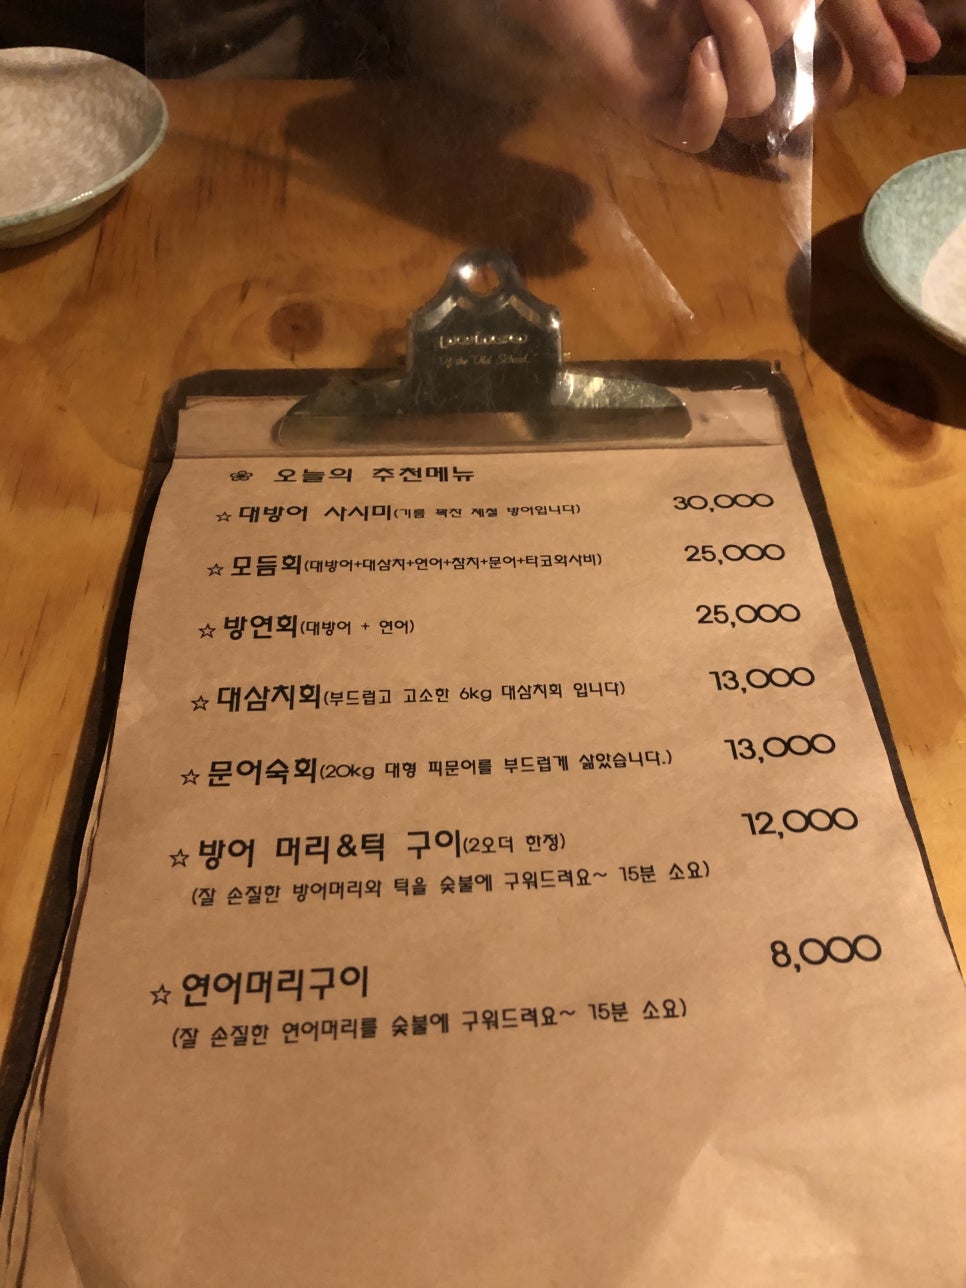 오늘의 추천메뉴
☆ 대방어 사시미(기름 꽉찬 제철 방어입니다) 30,000
☆ 모듬회(대방어+대삼치+연어+참치+문어+타코와사비) 25,000
☆ 방연회(대방어 + 연어) 25,000
☆ 대삼치회(부드럽고 고소한 6kg 대삼치회 입니다) 13,000
☆ 문어숙회(20kg 대형 피문어를 부드럽게 삶았습니다.) 13,000
☆ 방어 머리&턱 구이(2오더 한정) 12,000
(잘 손질한 방어머리와 턱을 숯불에 구워드려요~ 15분 소요)
☆ 연어머리구이 8,000
(잘 손질한 연어머리를 숯불에 구워드려요~ 15분 소요)